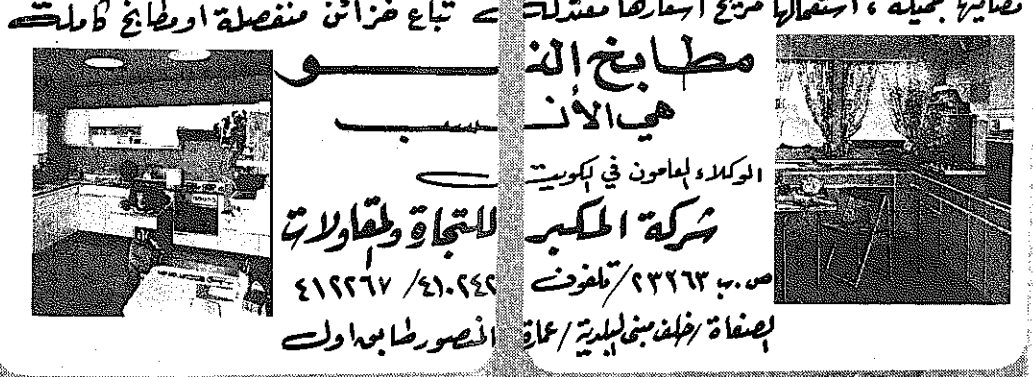 تصاميمها جميلة ، استعمالها مريح أسعارها معتدلة تباع خزائن منفصلة او مطابخ كاملة
مطابخ النـــو
هي الأنـــسب
الوكلاء العامون في الكويت
شركة المكبر للتجاة والمقاولات
ص.ب ٢٣٢٦٣/تلفون ٤١٠٢٤٢/ ٤١٢٢٦٧
الصفاة/خلف مبنى البلدية/عمارة المنصور طابق اول